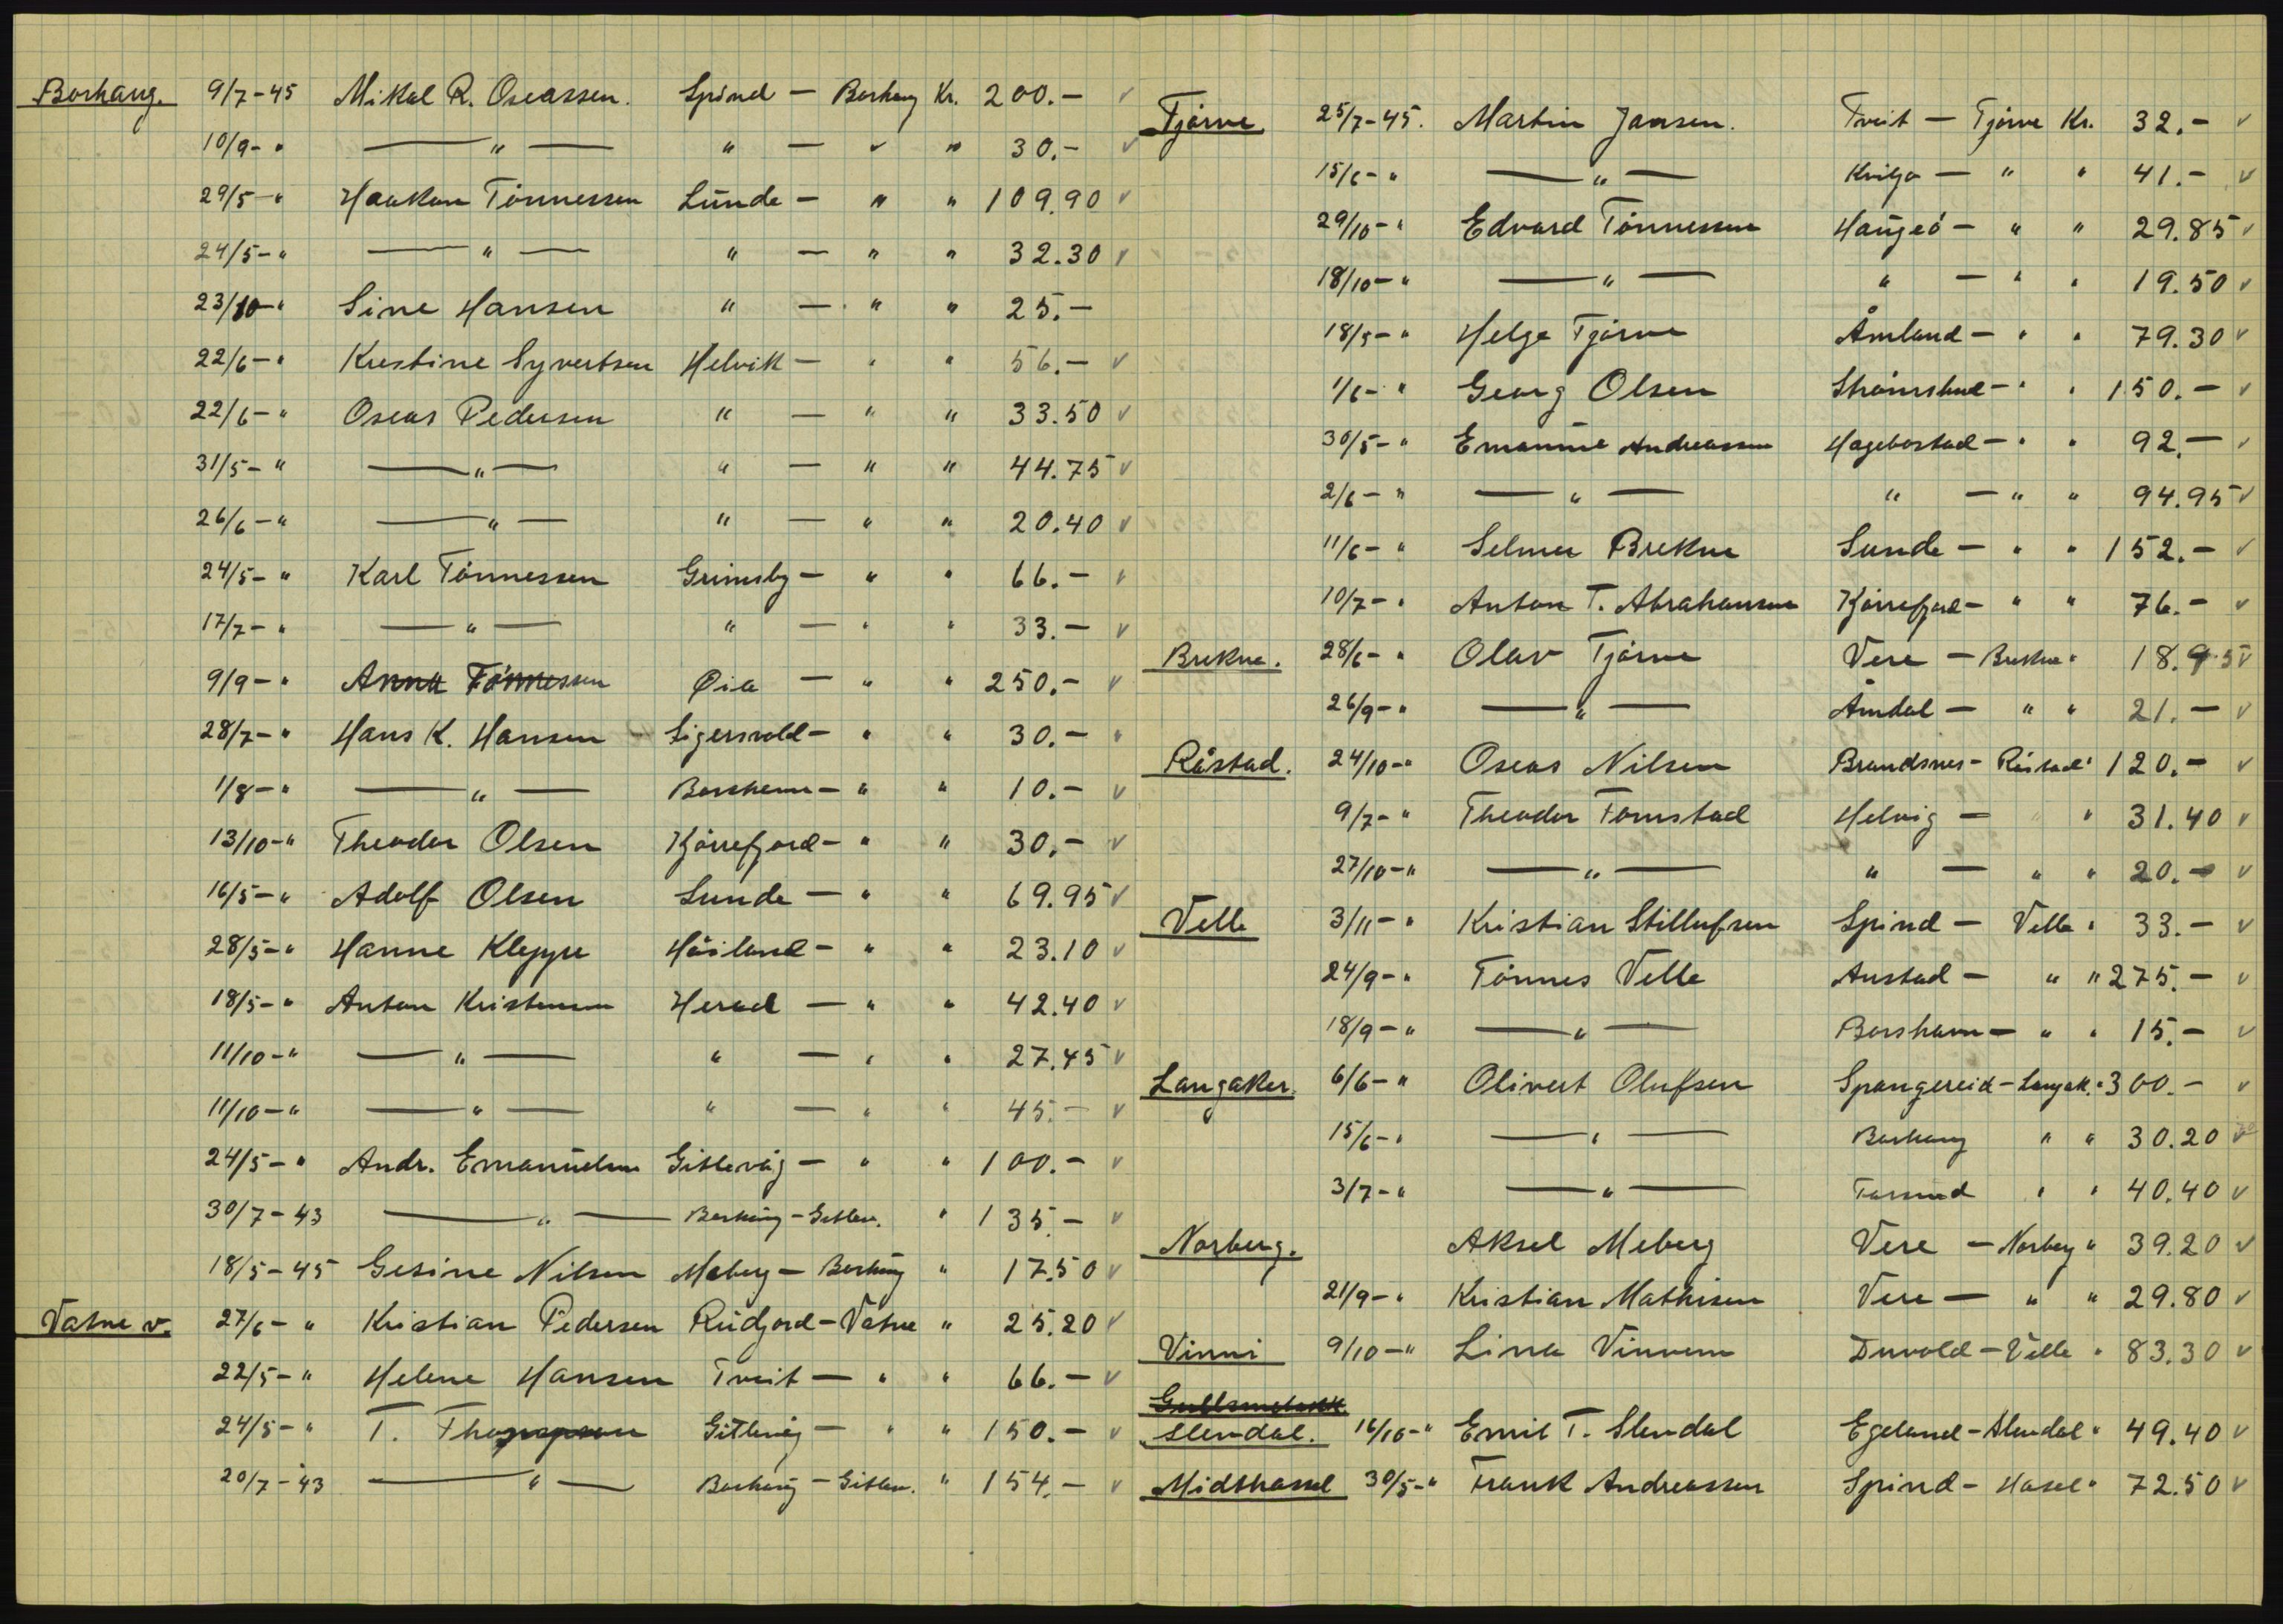 Borhaug. 9/7-45 Mikal R. Oseassen. Spind - Borhaug Kr. 200.- ✓
10/9- " — " — " - " " 30.- ✓
29/5- " Haakon Tönnessen Lunde - " " 109.90 ✓
24/5- " — " — " - " " 32.30 ✓
23/10- " Sine Hansen " - " " 25.-
22/6- " Kristine Syvertsen Helvik - " " 56.- ✓
22/6- " Oseas Pedersen " - " " 33.50 ✓
31/5- " — " — " - " " 44.75 ✓
26/6- " — " — " - " " 20.40 ✓
24/5- " Karl Tönnessen Grimsby - " " 66.- ✓
17/7- " — " — " - " " 33.- ✓
9/9- " Anna Tönnessen Øia - " " 250.- ✓
28/7- " Hans K. Hansen Sigersvold - " " 30.- ✓
1/8- " — " — Borshavn - " " 10.- ✓
13/10- " Theodor Olsen Kjörrefjord - " " 30.- ✓
16/5- " Adolf Olsen Sunde - " " 69.95 ✓
28/5- " Hanne Kleppe Höiland - " " 23.10 ✓
18/5- " Anton Kristensen Herad - " " 42.40 ✓
11/10- " — " — " - " " 27.45 ✓
11/10- " — " — " - " " 45.- ✓
24/5- " Andr. Emanuelsen Gitlevåg - " " 100.- ✓
30/7-43 — " — Borhaug - Gitlev. " 135.- ✓
18/5-45 Gesine Nilsen Meberg - Borhaug " 17.50 ✓
Vatne v. 27/6- " Kristian Pedersen Rudjord - Vatne " 25.20 ✓
22/5- " Helene Hansen Tveit - " " 66.- ✓
24/5- " T. Gitlevåg - " " 150.- ✓
20/7-43 — " — Borhaug - Gitlev. " 154.- ✓
Tjörve 25/7-45. Martin Jansen. Tveit - Tjörve Kr. 32.- ✓
15/6- " — " — Kviljo - " " 41.- ✓
29/10- " Edvard Tönnessen Haugeö - " " 29.85 ✓
18/10- " — " — " - " " 19.50 ✓
18/5- " Helge Tjörve Åmland - " " 79.30 ✓
1/6- " Georg Olsen - " " 150.- ✓
30/5- " Andreassen Hægebostad - " " 92.- ✓
2/6- " — " — " - " " 94.95 ✓
11/6- " Selmer Brekne Sunde - " " 152.- ✓
10/7- " Anton T. Abrahamsen Kjörrefjord - " " 76.- ✓
Brekne. 28/6- " Olav Tjörve Vere - Brekne " 18.95 ✓
26/9- " — " — Åmdal - " " 21.- ✓
Råstad. 24/10- " Oseas Nilsen Brandsnes - Råstad " 120.- ✓
9/7- " Theodor Tomstad Helvig - " " 31.40 ✓
27/10- " — " — " - " " 20.- ✓
Velle 3/11- " Kristian Stillufsen Spind - Velle " 33.- ✓
24/9- " Tönnes Velle Austad - " " 275.- ✓
18/9- " — " — Borshavn - " " 15.- ✓
Langaker. 6/6- " Olivert Olufsen Spangereid - Langak. " 300.- ✓
15/6- " — " — Borhaug " " 30.20 ✓
3/7- " — " — Farsund " " 40.40 ✓
Norberg. Aksel Meberg Vere - Norberg " 39.20 ✓
21/9- " Kristian Mathisen Vere - " " 29.80 ✓
Vinni 9/10- " Lina Duvold - Velle " 83.30 ✓
Slendal. 16/10- " Emil T. Slendal Egeland - Slendal " 49.40 ✓
Midthassel 30/5- " Frank Andreassen Spind - Hasel " 72.50 ✓